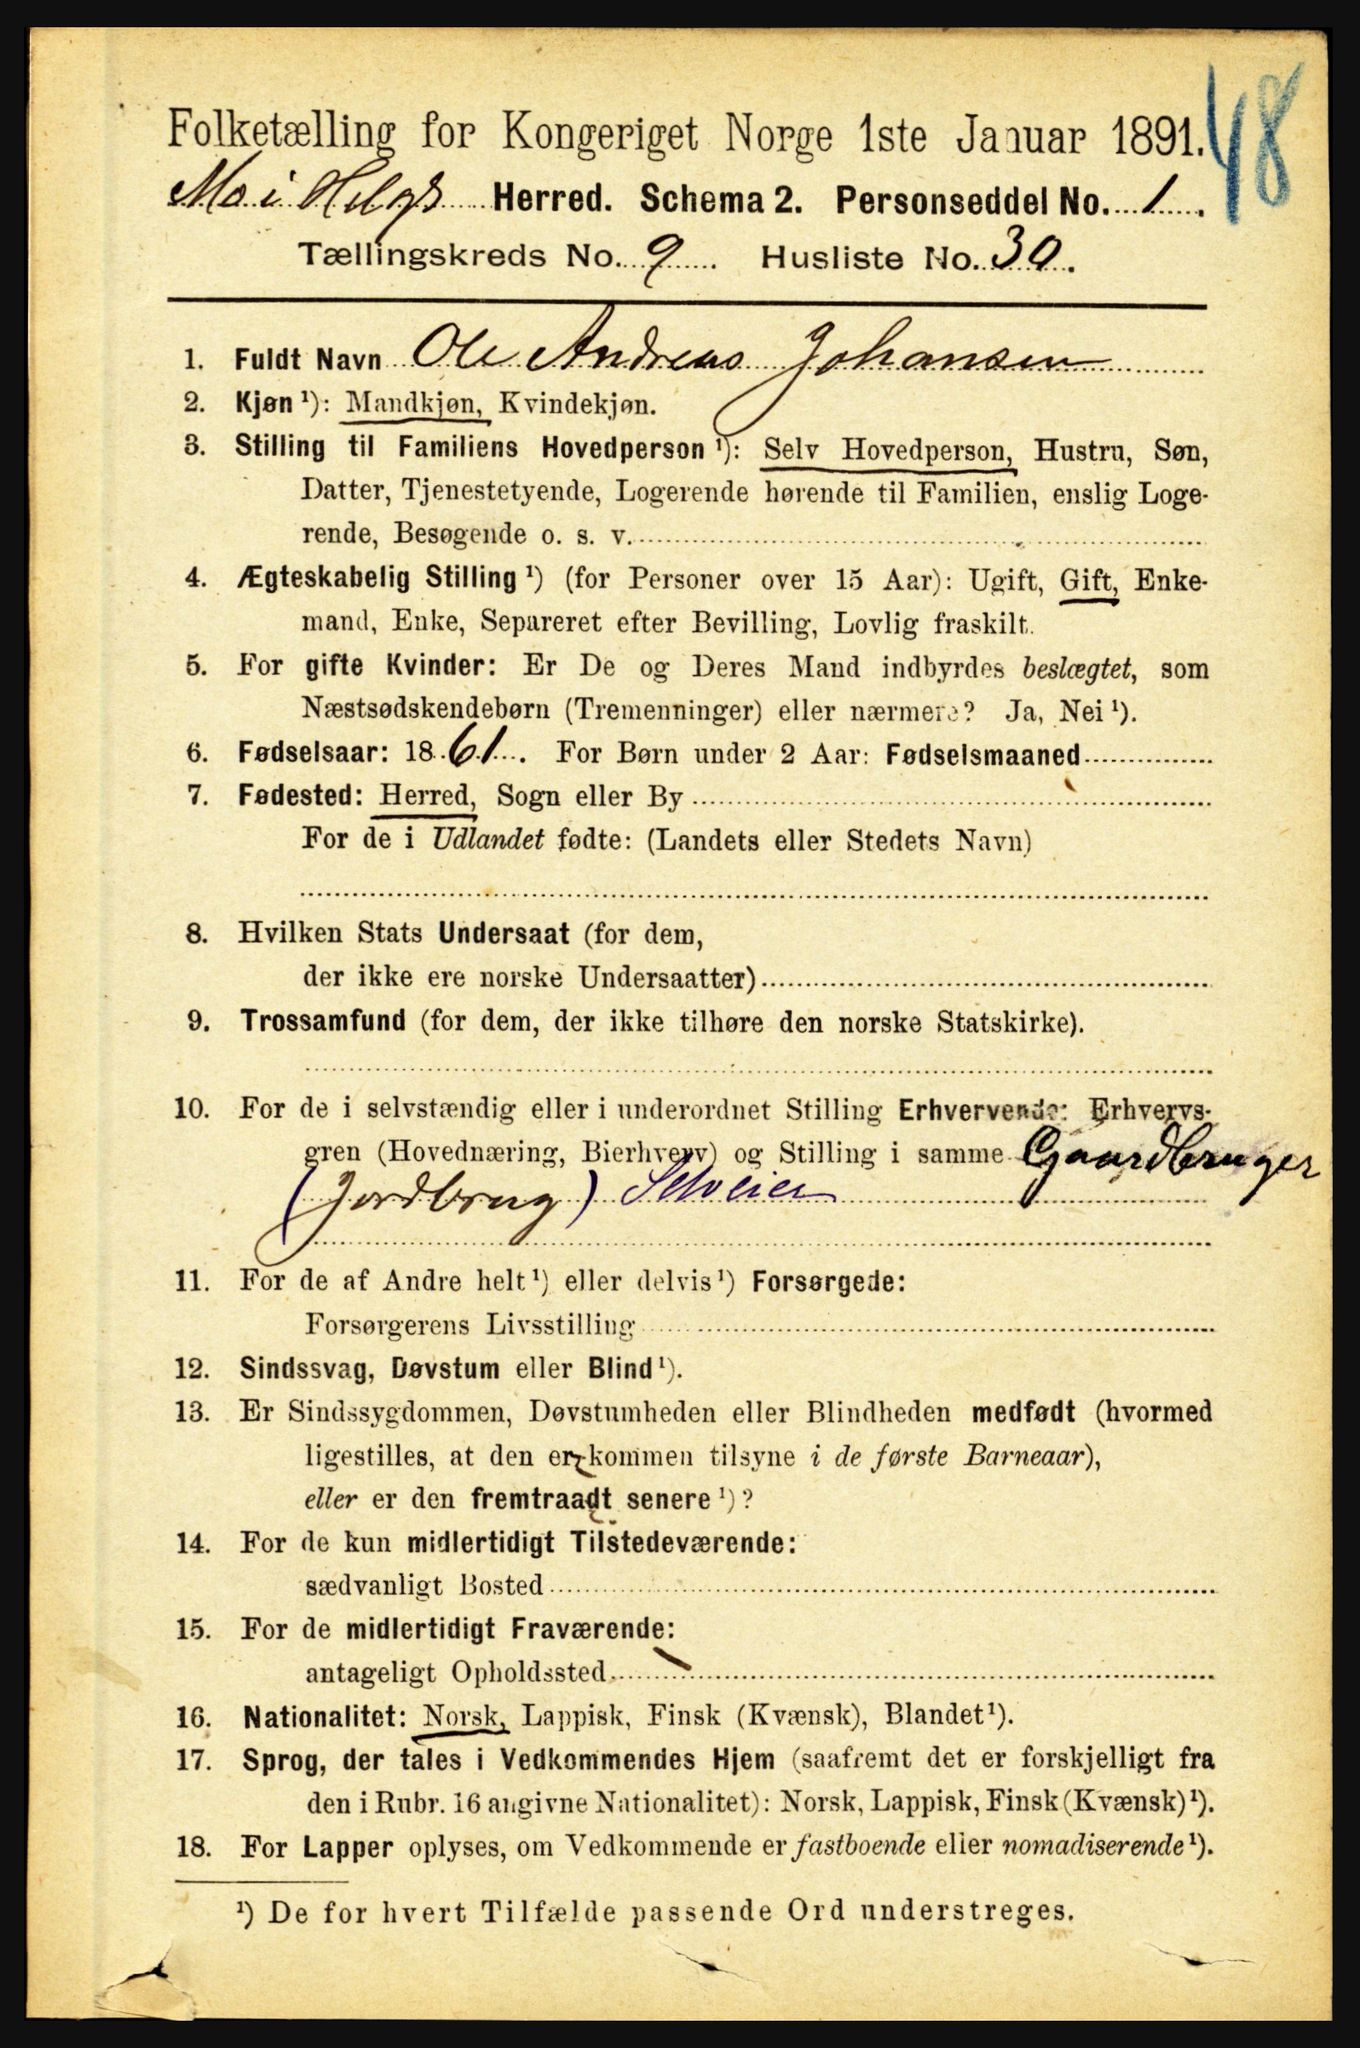 48
Folketælling for Kongeriget Norge 1ste Januar 1891.
Mo i Helgl Herred. Schema 2. Personseddel No. 1.
Tællingskreds No. 9. Husliste No. 30.
1. Fuldt Navn Ole Andreas Johansen
2. Kjøn ¹): Mandkjøn, Kvindekjøn.
3. Stilling til Familiens Hovedperson ¹): Selv Hovedperson, Hustru, Søn,
Datter, Tjenestetyende, Logerende hørende til Familien, enslig Loge-
rende, Besøgende o. s. v.
4. Ægteskabelig Stilling ¹) (for Personer over 15 Aar): Ugift, Gift, Enke-
mand, Enke, Separeret efter Bevilling, Lovlig fraskilt.
5. For gifte Kvinder: Er De og Deres Mand indbyrdes beslægtet, som
Næstsødskendebørn (Tremenninger) eller nærmere? Ja, Nei ¹).
6. Fødselsaar: 1861. For Børn under 2 Aar: Fødselsmaaned
7. Fødested: Herred, Sogn eller By
For de i Udlandet fødte: (Landets eller Stedets Navn)
8. Hvilken Stats Undersaat (for dem,
der ikke ere norske Undersaatter)
9. Trossamfund (for dem, der ikke tilhøre den norske Statskirke).
10. For de i selvstændig eller i underordnet Stilling Erhvervende: Erhvervs-
gren (Hovednæring, Bierhverv) og Stilling i samme Gaardbruger
(Jordbrug) Selveier
11. For de af Andre helt ¹) eller delvis ¹) Forsørgede:
Forsørgerens Livsstilling
12. Sindssvag, Døvstum eller Blind ¹).
13. Er Sindssygdommen, Døvstumheden eller Blindheden medfødt (hvormed
ligestilles, at den er kommen tilsyne i de første Barneaar),
eller er den fremtraadt senere ¹)?
14. For de kun midlertidigt Tilstedeværende:
sædvanligt Bosted
15. For de midlertidigt Fraværende:
antageligt Opholdssted
16. Nationalitet: Norsk, Lappisk, Finsk (Kvænsk), Blandet ¹).
17. Sprog, der tales i Vedkommendes Hjem (saafremt det er forskjelligt fra
den i Rubr. 16 angivne Nationalitet): Norsk, Lappisk, Finsk (Kvænsk) ¹).
18. For Lapper oplyses, om Vedkommende er fastboende eller nomadiserende ¹).
¹) De for hvert Tilfælde passende Ord understreges.